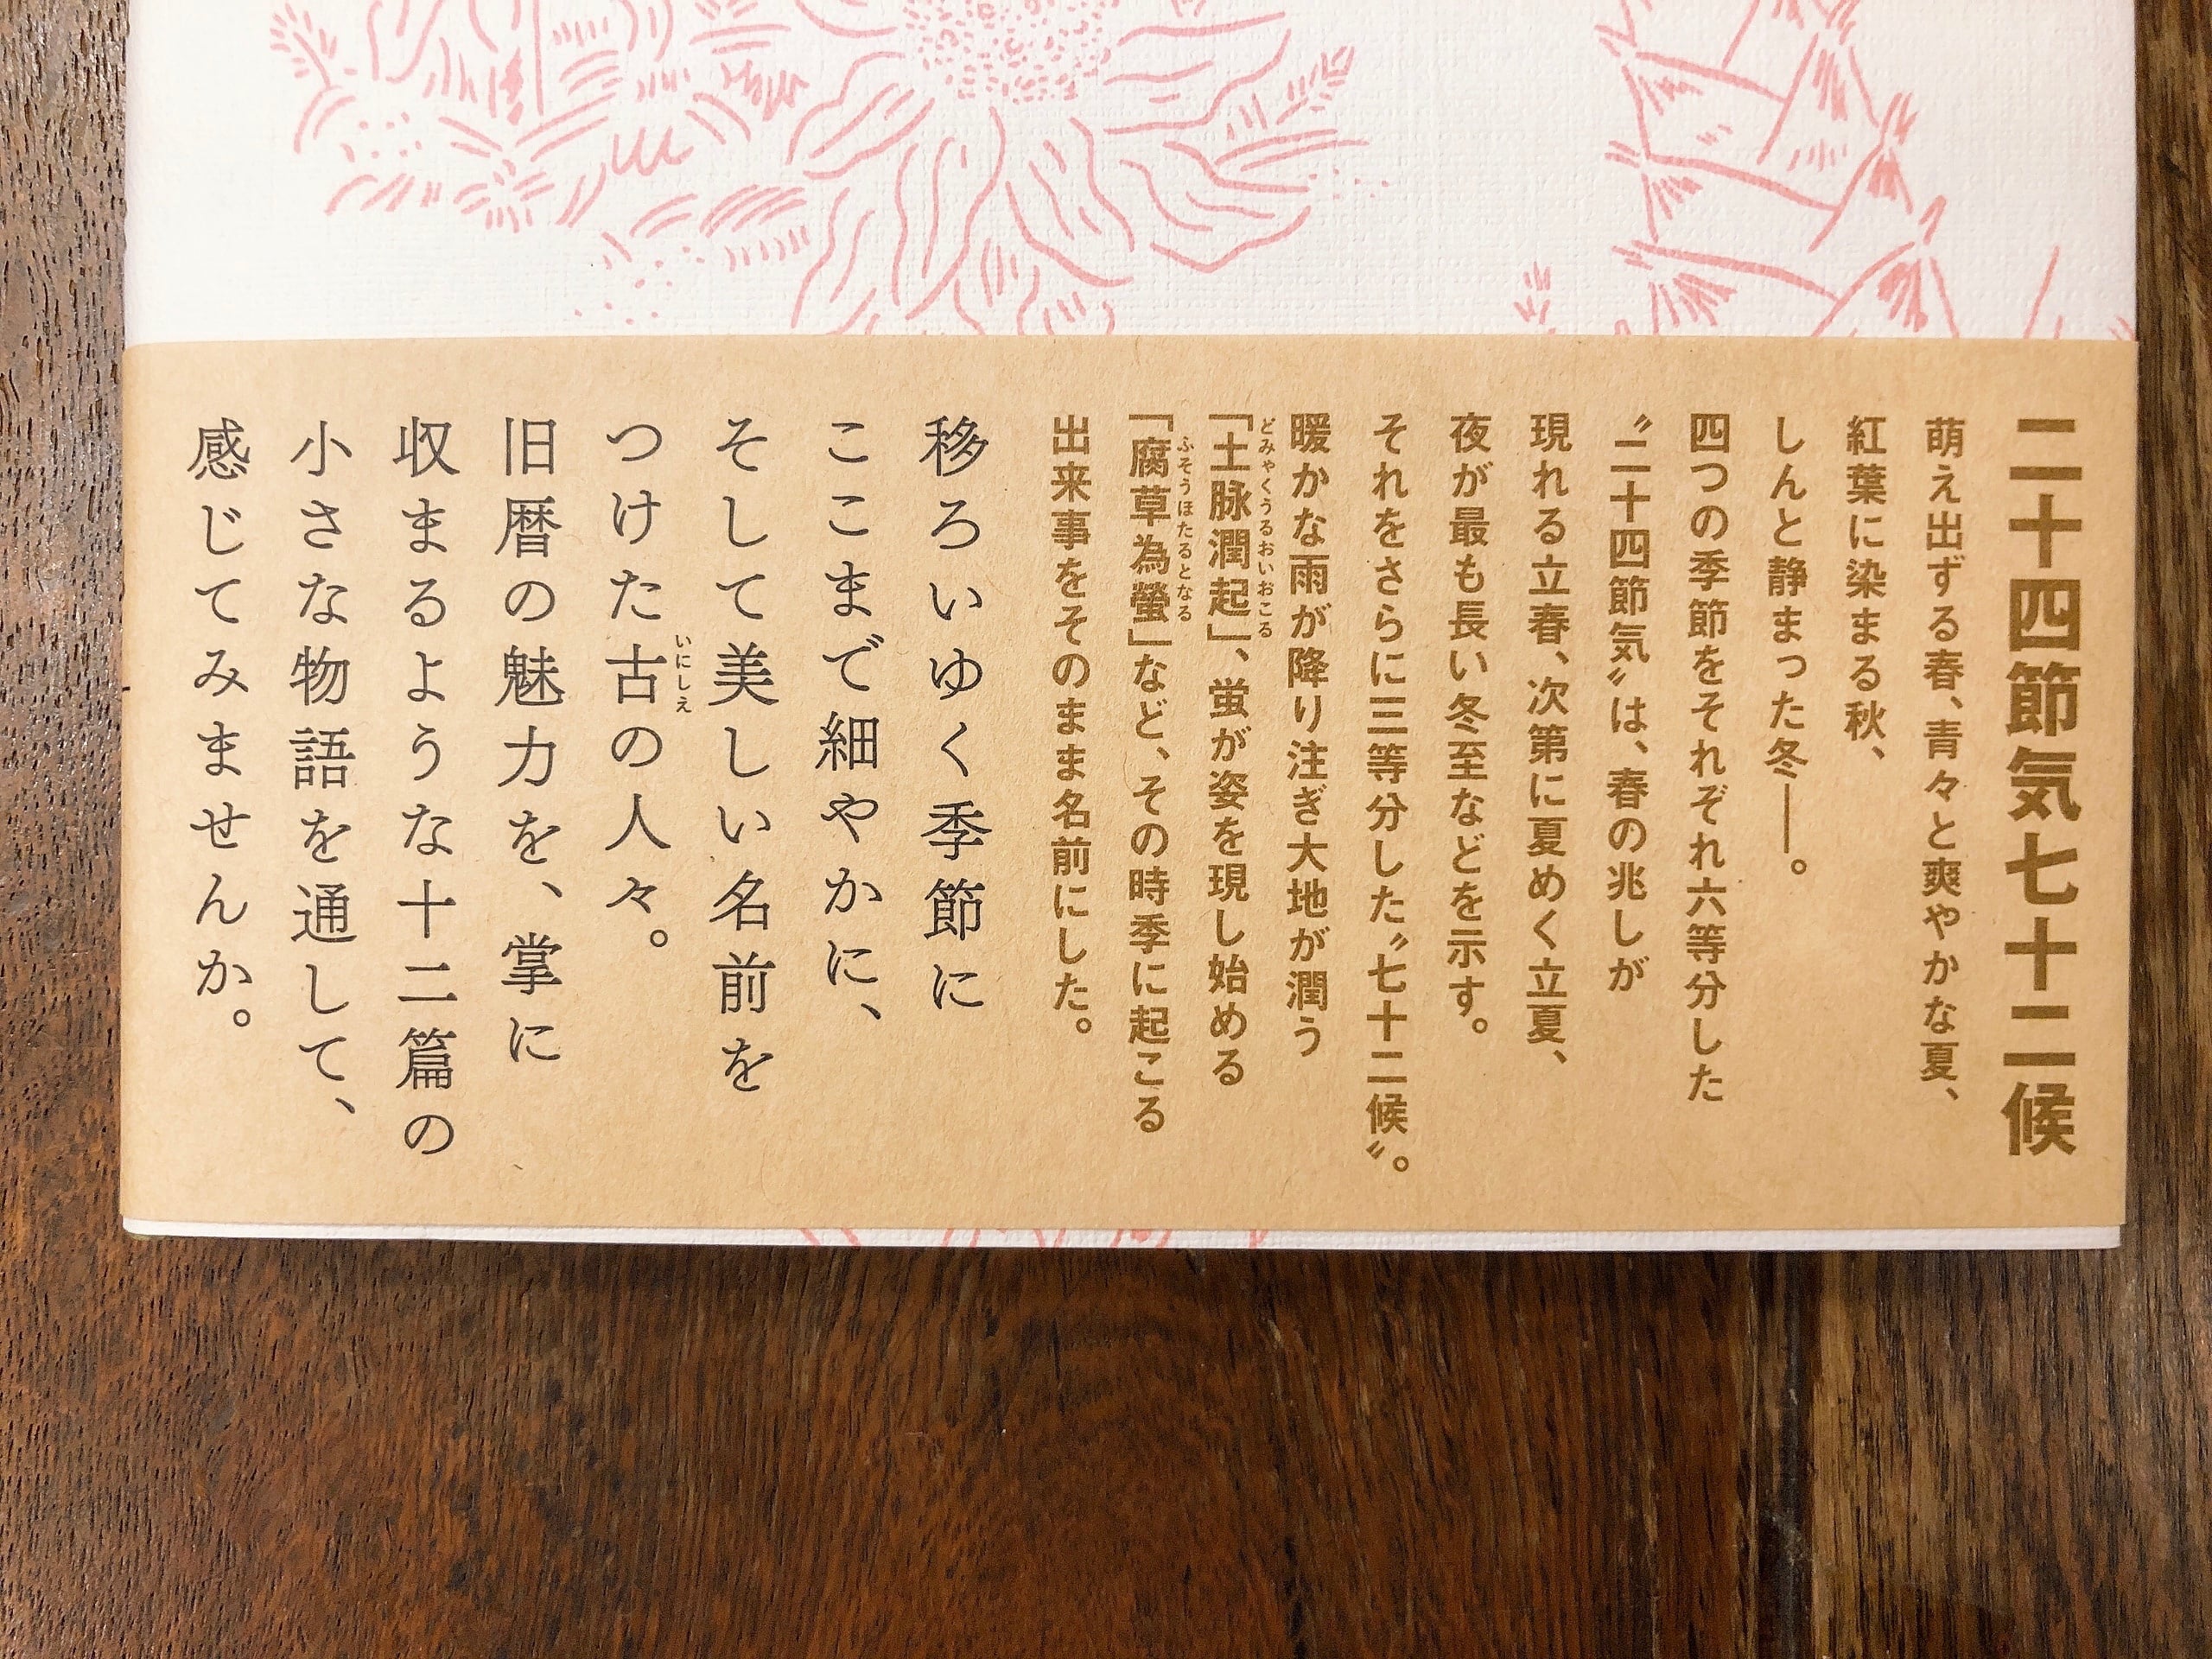 二十四節気七十二候
萌え出ずる春、青々と爽やかな夏、
紅葉に染まる秋、
しんと静まった冬——。
四つの季節をそれぞれ六等分した
〝二十四節気〟は、春の兆しが
現れる立春、次第に夏めく立夏、
夜が最も長い冬至などを示す。
それをさらに三等分した〝七十二候〟。
暖かな雨が降り注ぎ大地が潤う
どみゃくうるおいおこる
「土脉潤起」、蛍が姿を現し始める
ふそうほたるとなる
「腐草為螢」など、その時季に起こる
出来事をそのまま名前にした。
移ろいゆく季節に
ここまで細やかに、
そして美しい名前を
いにしえ
つけた古の人々。
旧暦の魅力を、掌に
収まるような十二篇の
小さな物語を通して、
感じてみませんか。